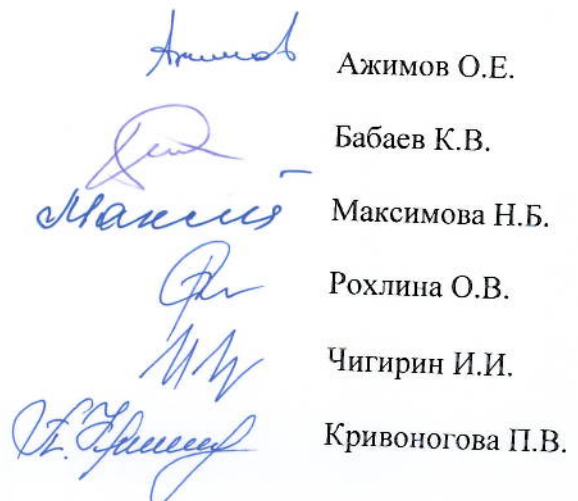 Ажимов О.Е.
Бабаев К.В.
Максимова Н.Б.
Рохлина О.В.
Чигирин И.И.
Кривоногова П.В.